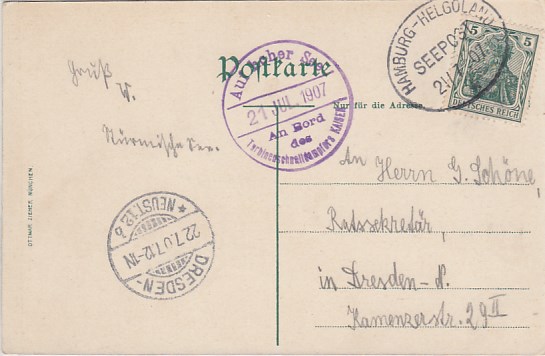 Postkarte
Nur für die Adresse.
Gruß
W.
Stürmische See.
An Herrn G. Schöne,
Ratssekretär,
in Dresden-N.
Kamenzerstr. 29 II
Auf hoher See
21 JUL. 1907
An Bord
des
Turbinenschnelldampfers KAISER
HAMBURG-HELGOLAND
SEEPOST
21.7.07
5 5
DEUTSCHES REICH
* NEUST. 12. b
22.7.07.12-1N
DRESDEN-
OTTMAR ZIEHER, MÜNCHEN